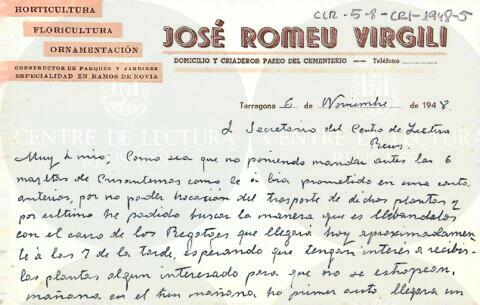 HORTICULTURA
FLORICULTURA
ORNAMENTACIÓN
CONSTRUCTOR DE PARQUES Y JARDINES
ESPECIALIDAD EN RAMOS DE NOVIA
CLR-5-8-CRI-1948-5
JOSÉ ROMEU VIRGILI
DOMICILIO Y CRIADEROS: PASEO DEL CEMENTERIO — Teléfono
Tarragona 6 de Noviembre de 1948.
Secretario del Centro de Lectura
Reus.
Muy Sr mio; Como sea que no poniendo mandar antes las 6
masetas de Crisantemos como le abia prometido en una carta
anterior, por no poder del trasporte de dichas plantas y
por ultimo he podido buscar la manera que es llebandolas
con el carro de los Bagatges que llegará hoy aproximadamen
te á las 7 de la tarde, esperando que tengan interés a recibir
las plantas algun interesado pera que no se estropean,
mañana en el tren mañana ho primer auto llegara un
CENTRE DE LECTURA